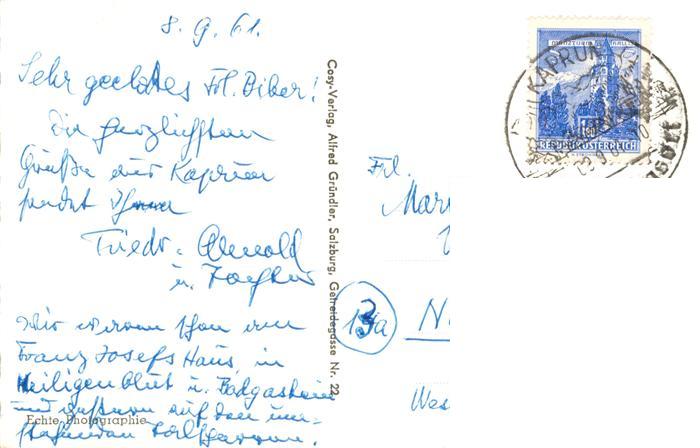 8. 9. 61.
Sehr geehrtes Frl. Biber!
Die herzlichsten
Grüße aus Kaprun
sendet Ihnen
Friedr. Arnold
u. Tochter
Wir waren schon am
Franz Josefs Haus, in
Heiligenblut u. Badgastein
und außerdem auf den um-
Echte Photographie
Cosy-Verlag, Alfred Gründler, Salzburg, Getreidegasse Nr. 22
KAPRUN
MÜNZTURM HALL
REPUBLIK ÖSTERREICH
Frl.
Mar
13a
N
Wes